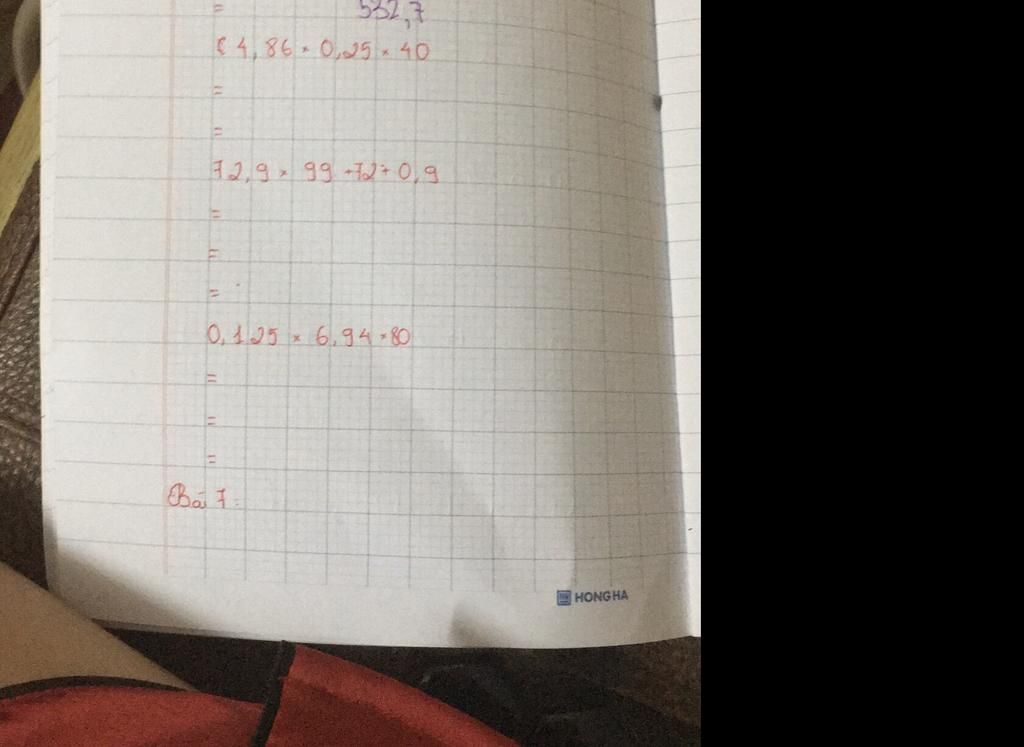 = 532,7
( 4,86 × 0,25 × 40
=
=
72,9 × 99 + 72 + 0,9
=
=
=
0,125 × 6,94 × 80
=
=
=
Bài 7.
HONG HA